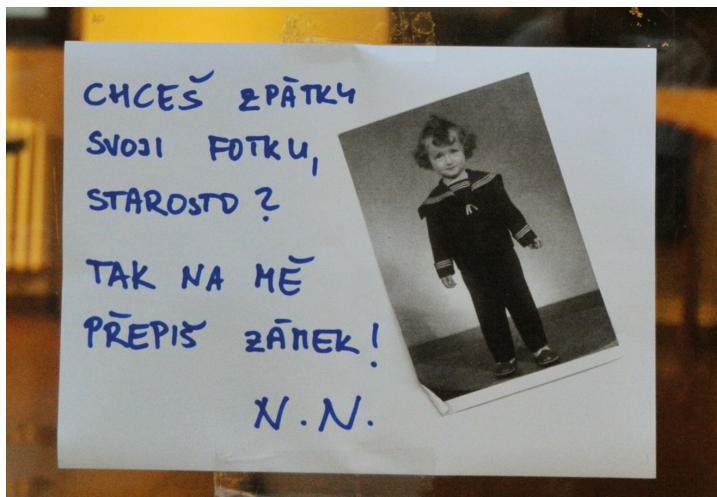 CHCEŠ ZPÁTKY
SVOJI FOTKU,
STAROSTO?
TAK NA MĚ
PŘEPIŠ ZÁMEK!
N.N.